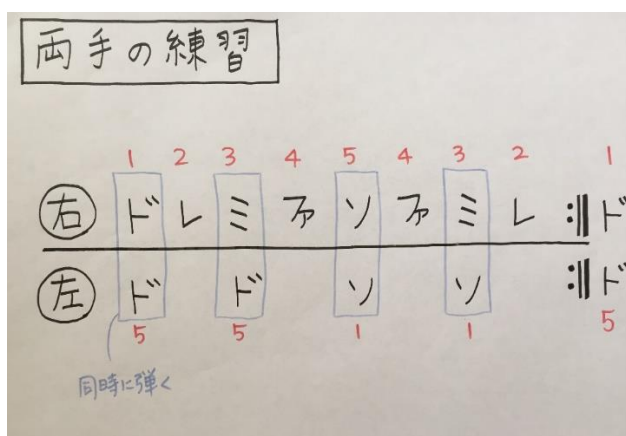 両手の練習
1 2 3 4 5 4 3 2 1
右 ド レ ミ ファ ソ ファ ミ レ :‖ ド
左 ド ド ソ ソ :‖ ド
5 5 1 1 5
同時に弾く